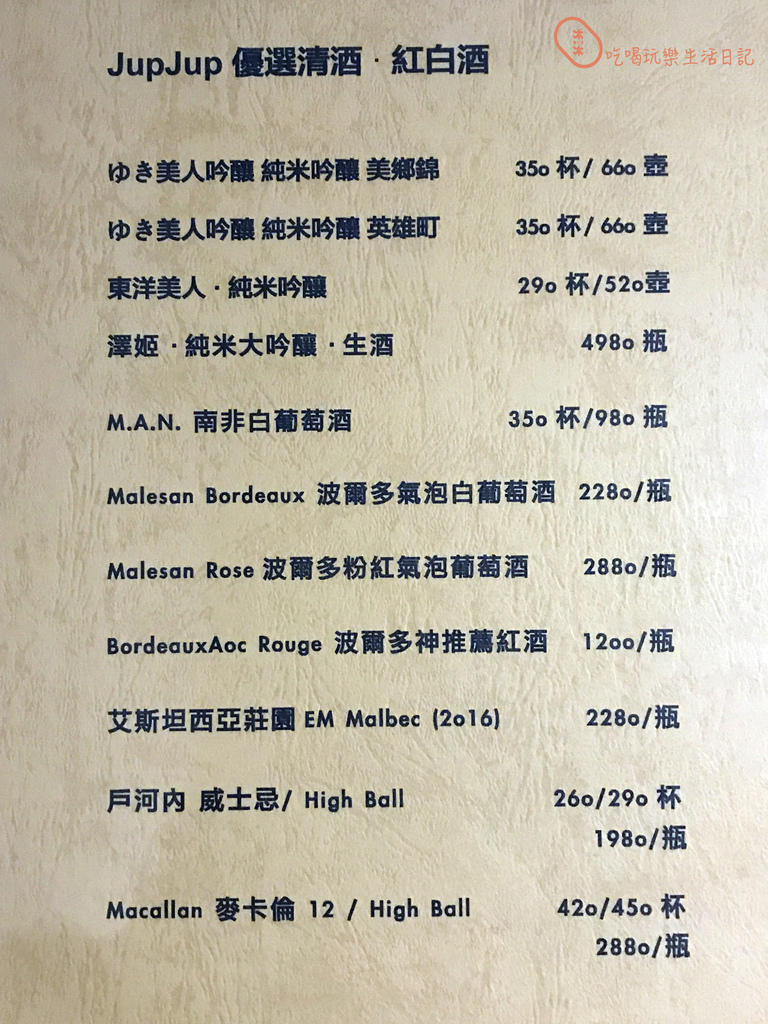 JupJup 優選清酒·紅白酒
吃喝玩樂生活日記
ゆき美人吟釀 純米吟釀 美鄉錦 350 杯/ 660 壺
ゆき美人吟釀 純米吟釀 英雄町 350 杯/ 660 壺
東洋美人·純米吟釀 290 杯/520壺
澤姬·純米大吟釀·生酒 4980 瓶
M.A.N. 南非白葡萄酒 350 杯/980 瓶
Malesan Bordeaux 波爾多氣泡白葡萄酒 2280/瓶
Malesan Rose 波爾多粉紅氣泡葡萄酒 2880/瓶
BordeauxAoc Rouge 波爾多神推薦紅酒 1200/瓶
艾斯坦西亞莊園 EM Malbec (2016) 2280/瓶
戶河內 威士忌/ High Ball 260/290 杯
1980/瓶
Macallan 麥卡倫 12 / High Ball 420/450 杯
2880/瓶